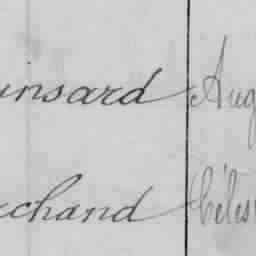 insard Aug
chand Céles